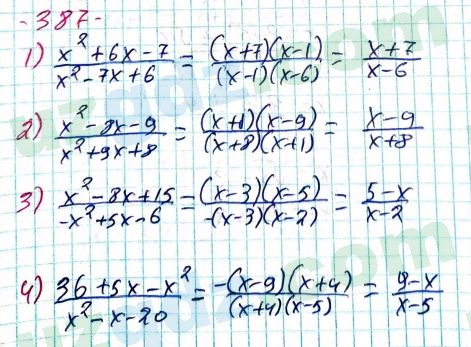 -387-
1) (x²+6x-7)/(x²-7x+6) = ((x+7)(x-1))/((x-1)(x-6)) = (x+7)/(x-6)
2) (x²-8x-9)/(x²+9x+8) = ((x+1)(x-9))/((x+8)(x+1)) = (x-9)/(x+8)
3) (x²-8x+15)/(-x²+5x-6) = ((x-3)(x-5))/(-(x-3)(x-2)) = (5-x)/(x-2)
4) (36+5x-x²)/(x²-x-20) = (-(x-9)(x+4))/((x+4)(x-5)) = (9-x)/(x-5)